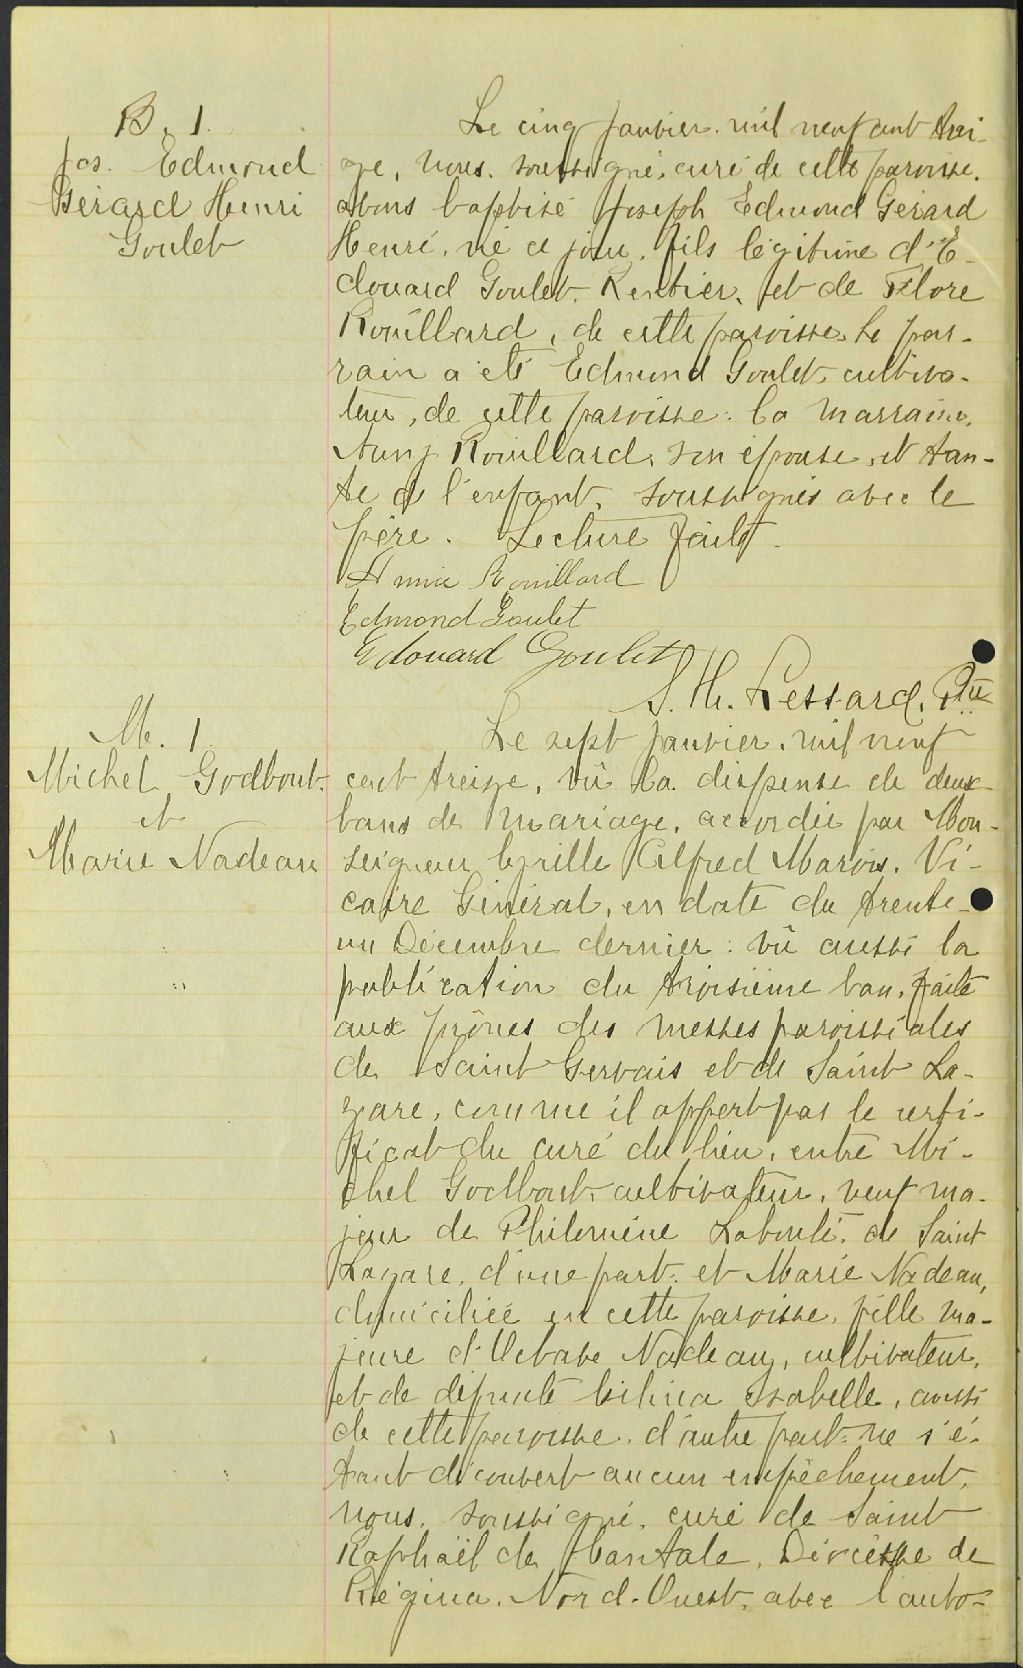 B. 1.
Jos. Edmond
Gérard Henri
Goulet
Le cinq Janvier mil neuf cent trei-
ze, nous, soussigné, curé de cette paroisse,
avons baptisé Joseph Edmond Gérard
Henri, né ce jour, fils légitime d'E-
douard Goulet, Rentier, et de Flore
Rouillard, de cette paroisse. Le par-
rain a été Edmond Goulet, cultiva-
teur, de cette paroisse: la marraine,
Rouillard, son épouse, et tan-
te de l'enfant, soussignés avec le
père. Lecture faite.
Annie Rouillard
Edmond Goulet
Edouard Goulet
S. H. Lessard, Ptre
M. 1
Michel Godbout
et
Marie Nadeau
Le sept Janvier, mil neuf
cent treize, vû la dispense de deux
bans de mariage, accordée par Mon-
seigneur Cyrille Alfred Marois, Vi-
caire Général, en date du trente-
un Décembre dernier: vû aussi la
publication du troisième ban, faite
aux prônes des messes paroissiales
de Saint Gervais et de Saint La-
zare, comme il appert par le certi-
ficat du curé du lieu, entre Mi-
chel Godbout, cultivateur, veuf ma-
jeur de Philomène Labonté, de Saint
Lazare, d'une part: et Marie Nadeau,
domiciliée en cette paroisse, fille ma-
jeure d'Octave Nadeau, cultivateur,
et de défunte Isabelle, aussi
de cette paroisse, d'autre part: ne s'é-
tant découvert aucun empêchement,
nous, soussigné, curé de Saint
Raphaël de Diocèse de
Régina, Nord-Ouest, avec l'auto-